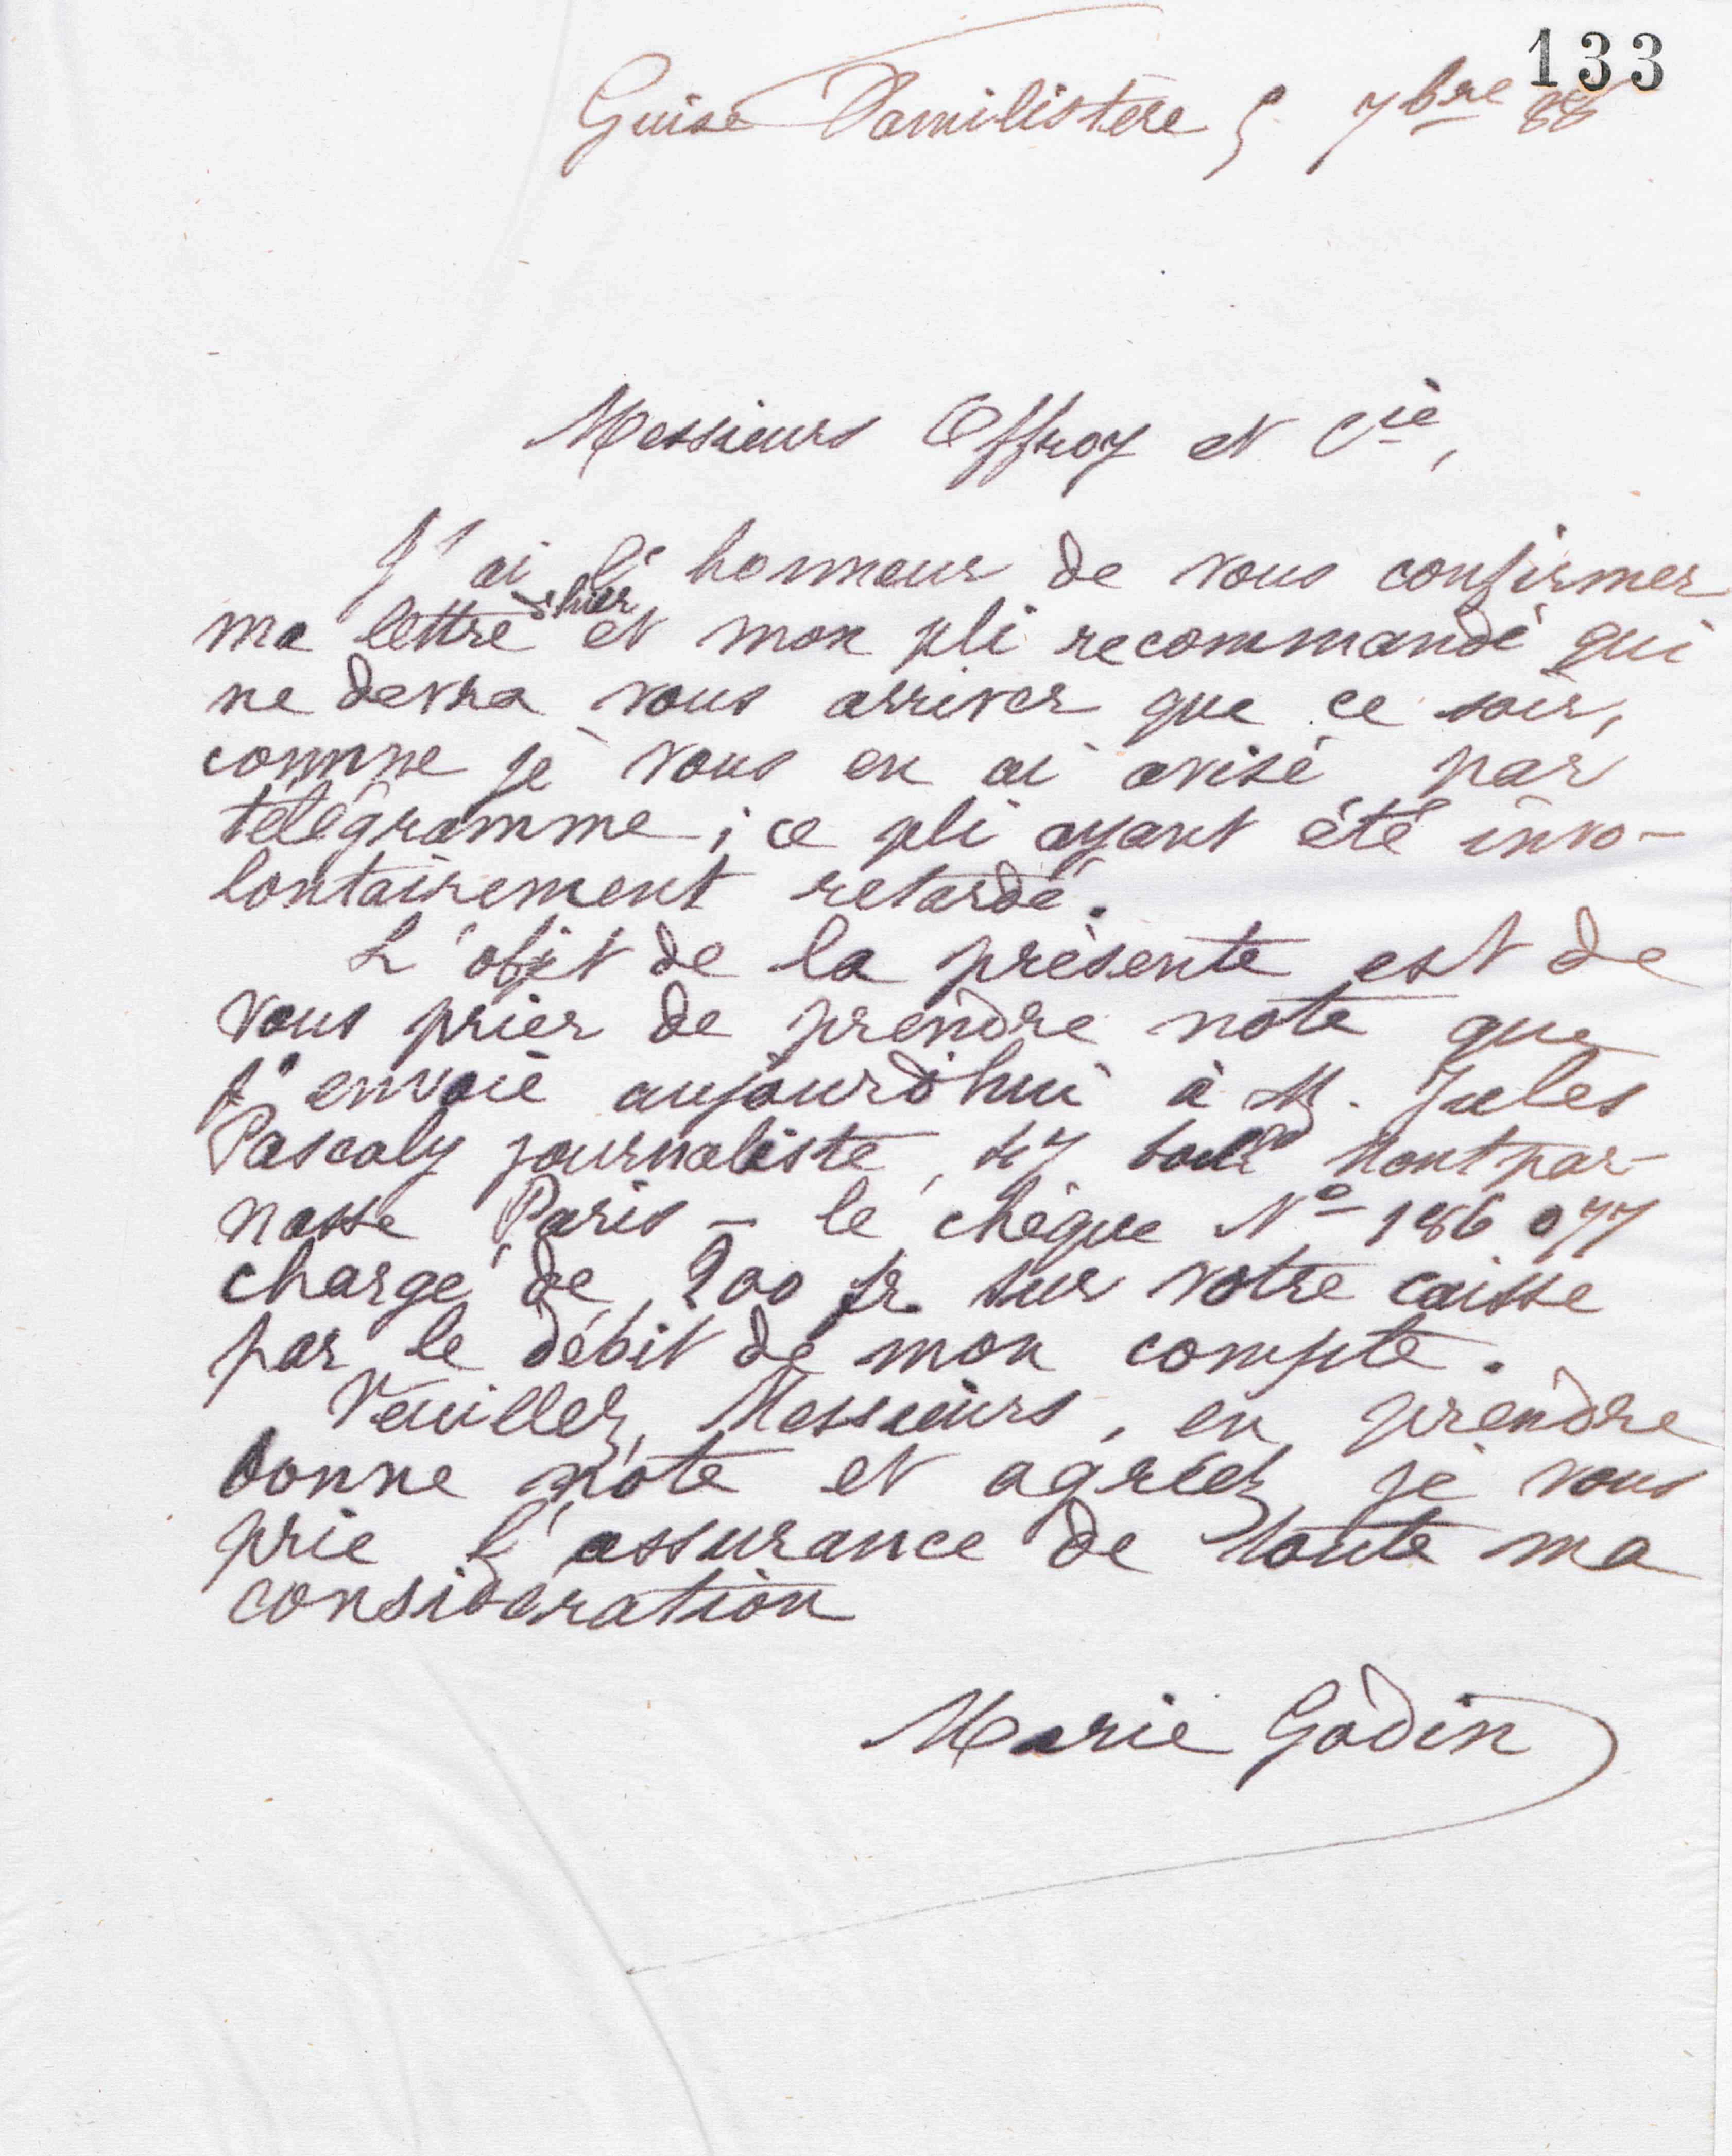 133
Guise Familistère 5 7bre 88
Messieurs Offroy et Cie,
J'ai l'honneur de vous confirmer
ma lettre d'hier et mon pli recommandé qui
ne devra vous arriver que ce soir,
comme je vous en ai avisé par
télégramme ; ce pli ayant été invo-
lontairement retardé.
L'objet de la présente est de
vous prier de prendre note que
j'envoie aujourd'hui à M. Jules
Pascaly journaliste, boulrd Montpar-
nasse Paris - le chèque No 186 077
chargé de 200 fr. sur votre caisse
par le débit de mon compte.
Veuillez, Messieurs, en prendre
bonne note et agréez je vous
prie l'assurance de toute ma
considération
Marie Godin